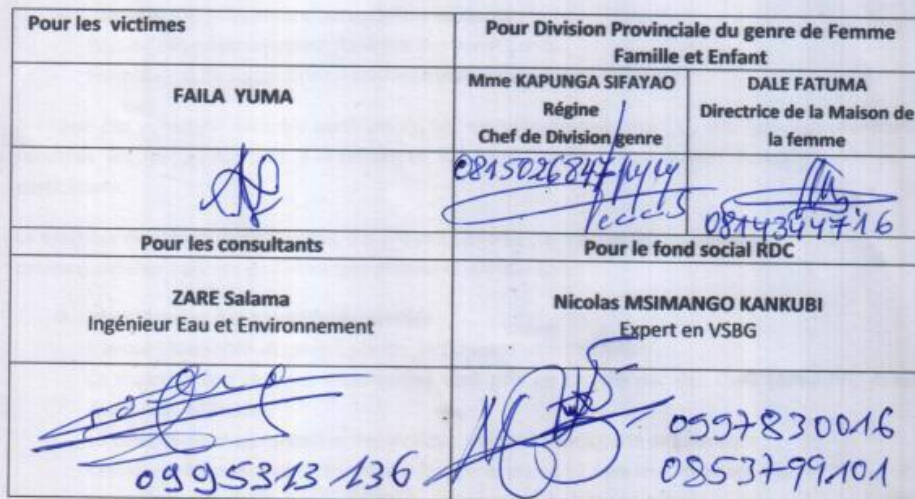 Pour les victimes
Pour Division Provinciale du genre de Femme
Famille et Enfant
FAILA YUMA
Mme KAPUNGA SIFAYAO
Régine
Chef de Division genre
DALE FATUMA
Directrice de la Maison de
la femme
0815026847
0814394716
Pour les consultants
Pour le fond social RDC
ZARE Salama
Ingénieur Eau et Environnement
Nicolas MSIMANGO KANKUBI
Expert en VSBG
0995313136
0997830016
0853799101